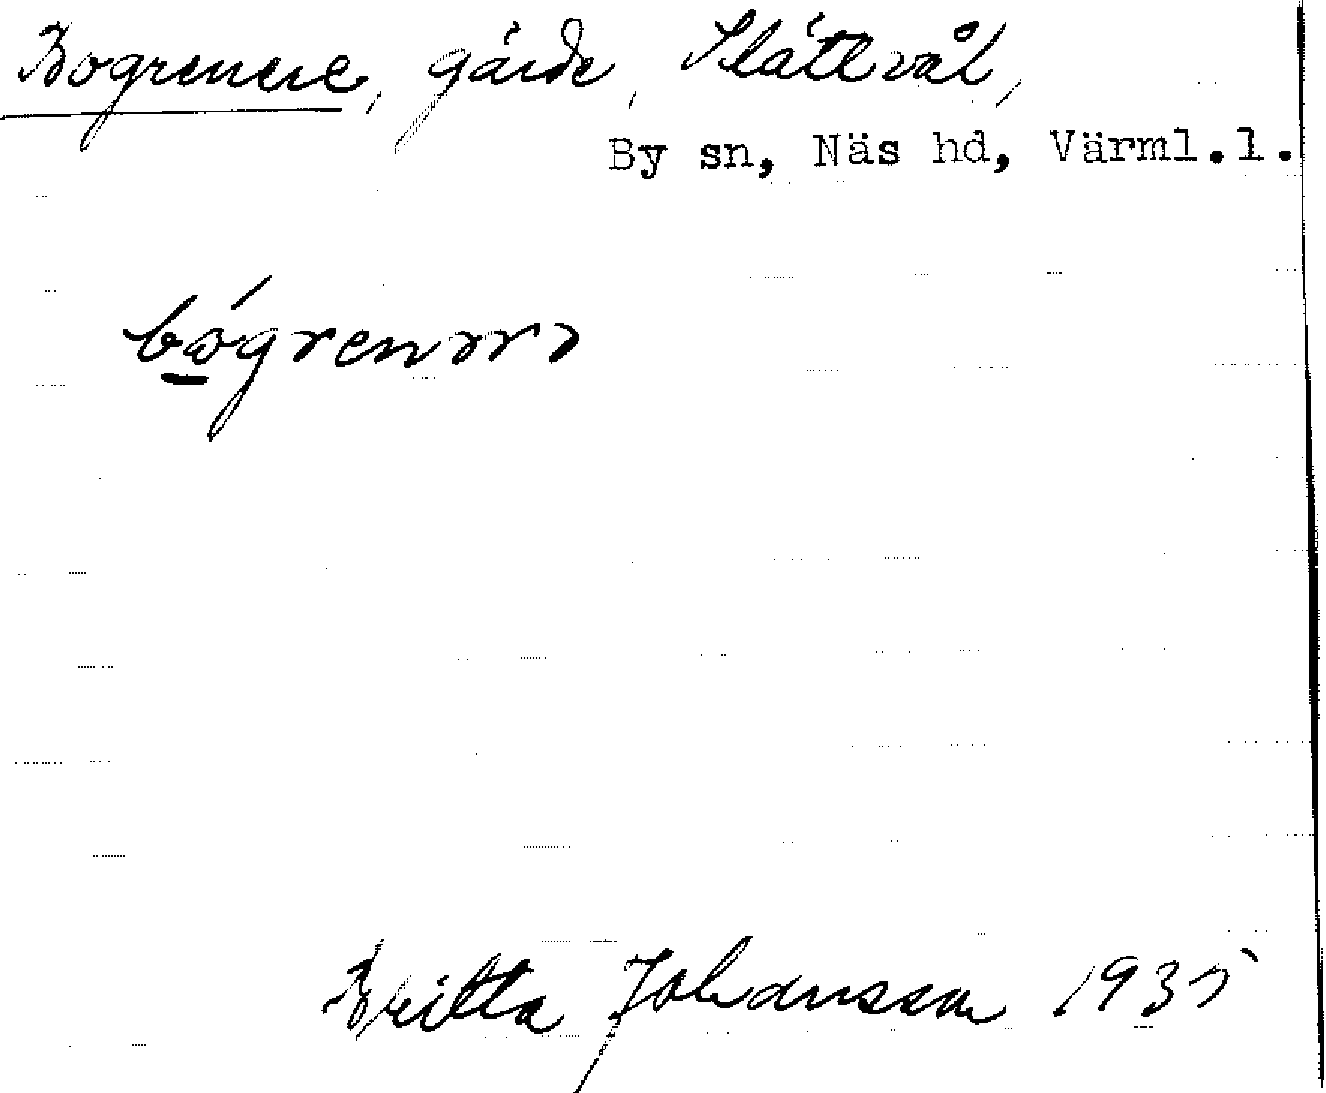 Bogrenere, gärde, Slättvål,
By sn, Näs hd, Värml.l.
Britta Johansson 1935